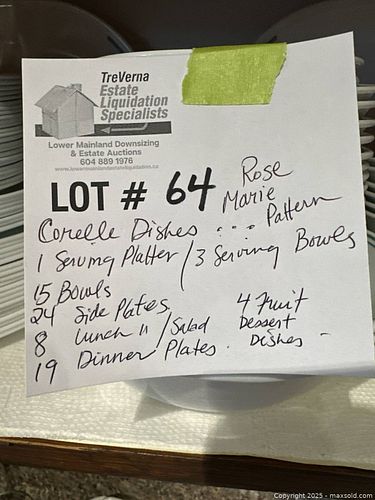 TreVerna
Estate
Liquidation
Specialists
Lower Mainland Downsizing
& Estate Auctions
604 889 1976
www.lowermainlandestateliquidation.ca
LOT # 64
Rose
Marie
Pattern
Corelle Dishes ...
1 Serving Platter / 3 Serving Bowls
15 Bowls
24 Side Plates
8 Lunch " / Salad
19 Dinner Plates.
4 Fruit
Dessert
Dishes -
Copyright 2025 - maxsold.com